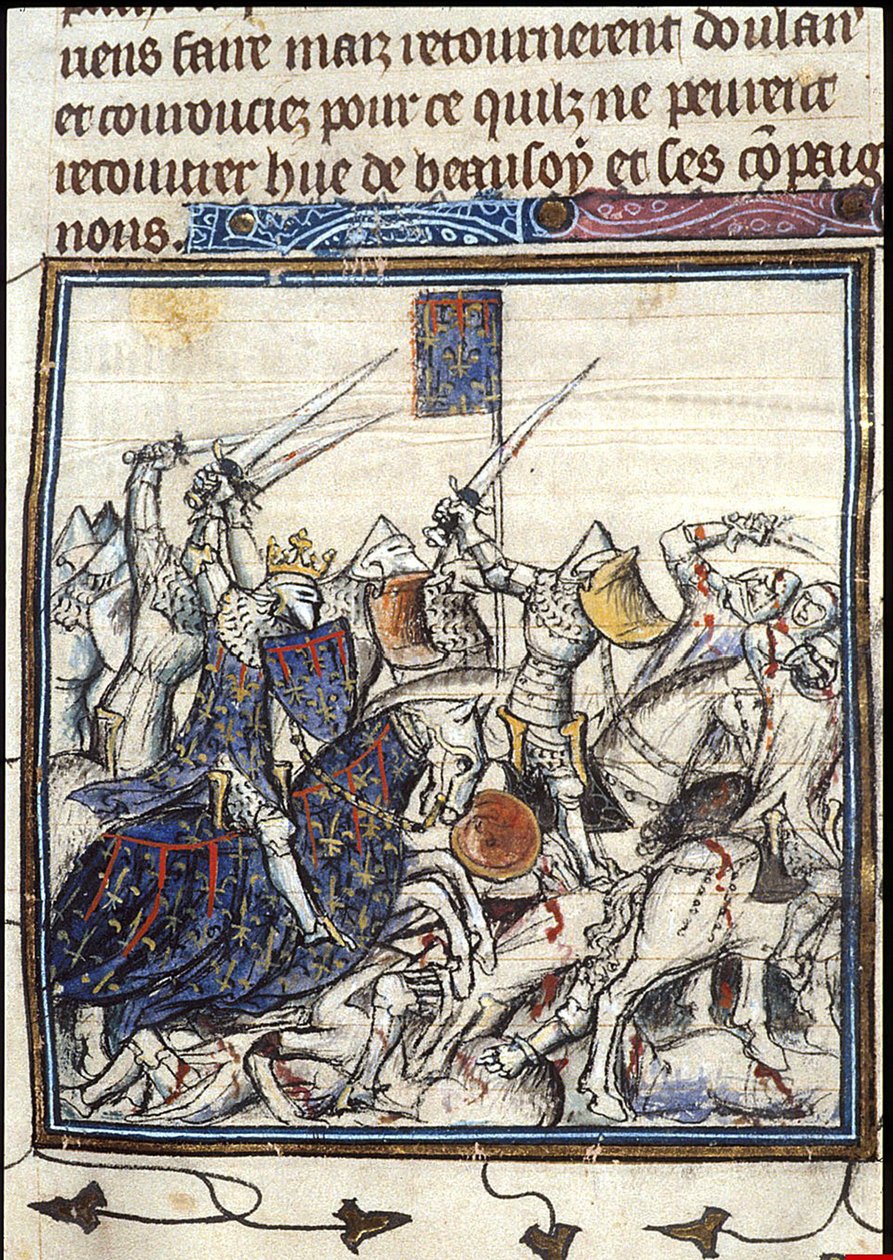 uens faire mais retournerent doulan
et courouciez pour ce quilz ne peurent
recouurer hue de beausoy et ses cōpaig
nons.